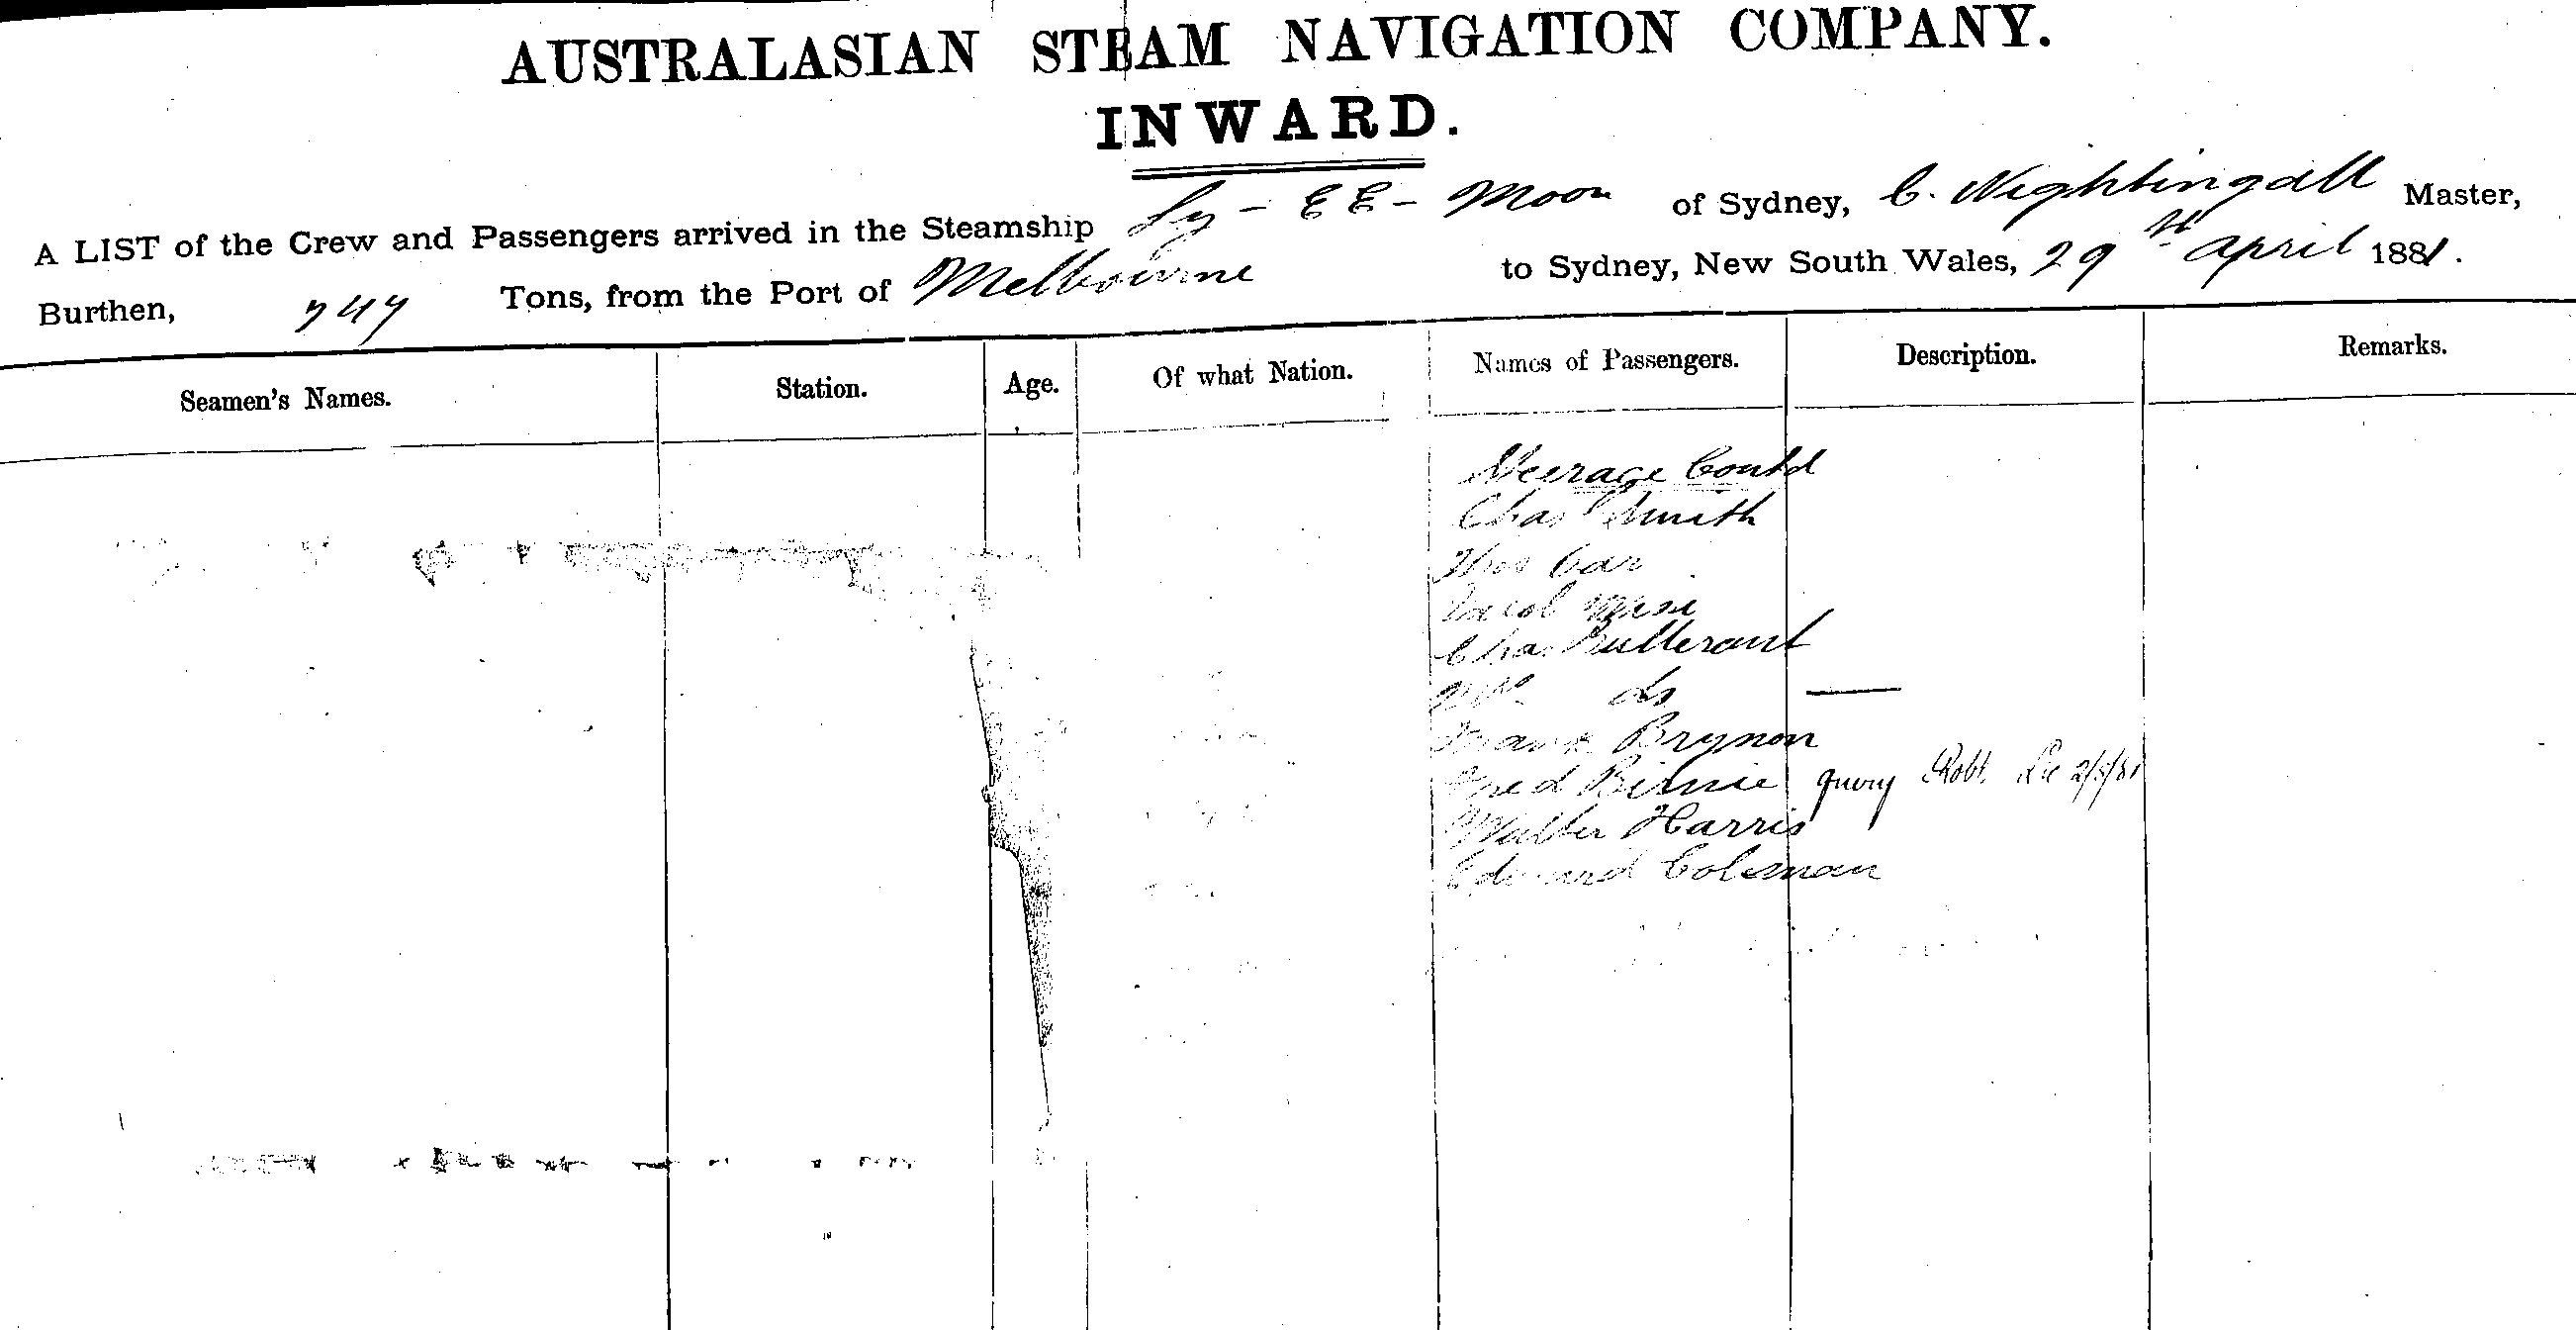 AUSTRALASIAN STEAM NAVIGATION COMPANY.
INWARD.
A LIST of the Crew and Passengers arrived in the Steamship Ly-EE-Moon of Sydney, C. Nightingall Master,
Burthen, 747 Tons, from the Port of Melbourne to Sydney, New South Wales, 29th april 1881.
Seamen's Names. Station. Age. Of what Nation. Names of Passengers. Description. Remarks.
Steerage Contd
Chas Smith
Thos Car
Jacob
Chas
Mrs Do —
Frank Brynon
Fred Birnie query Robt. 2/5/81
Walter Harris
Edward Coleman